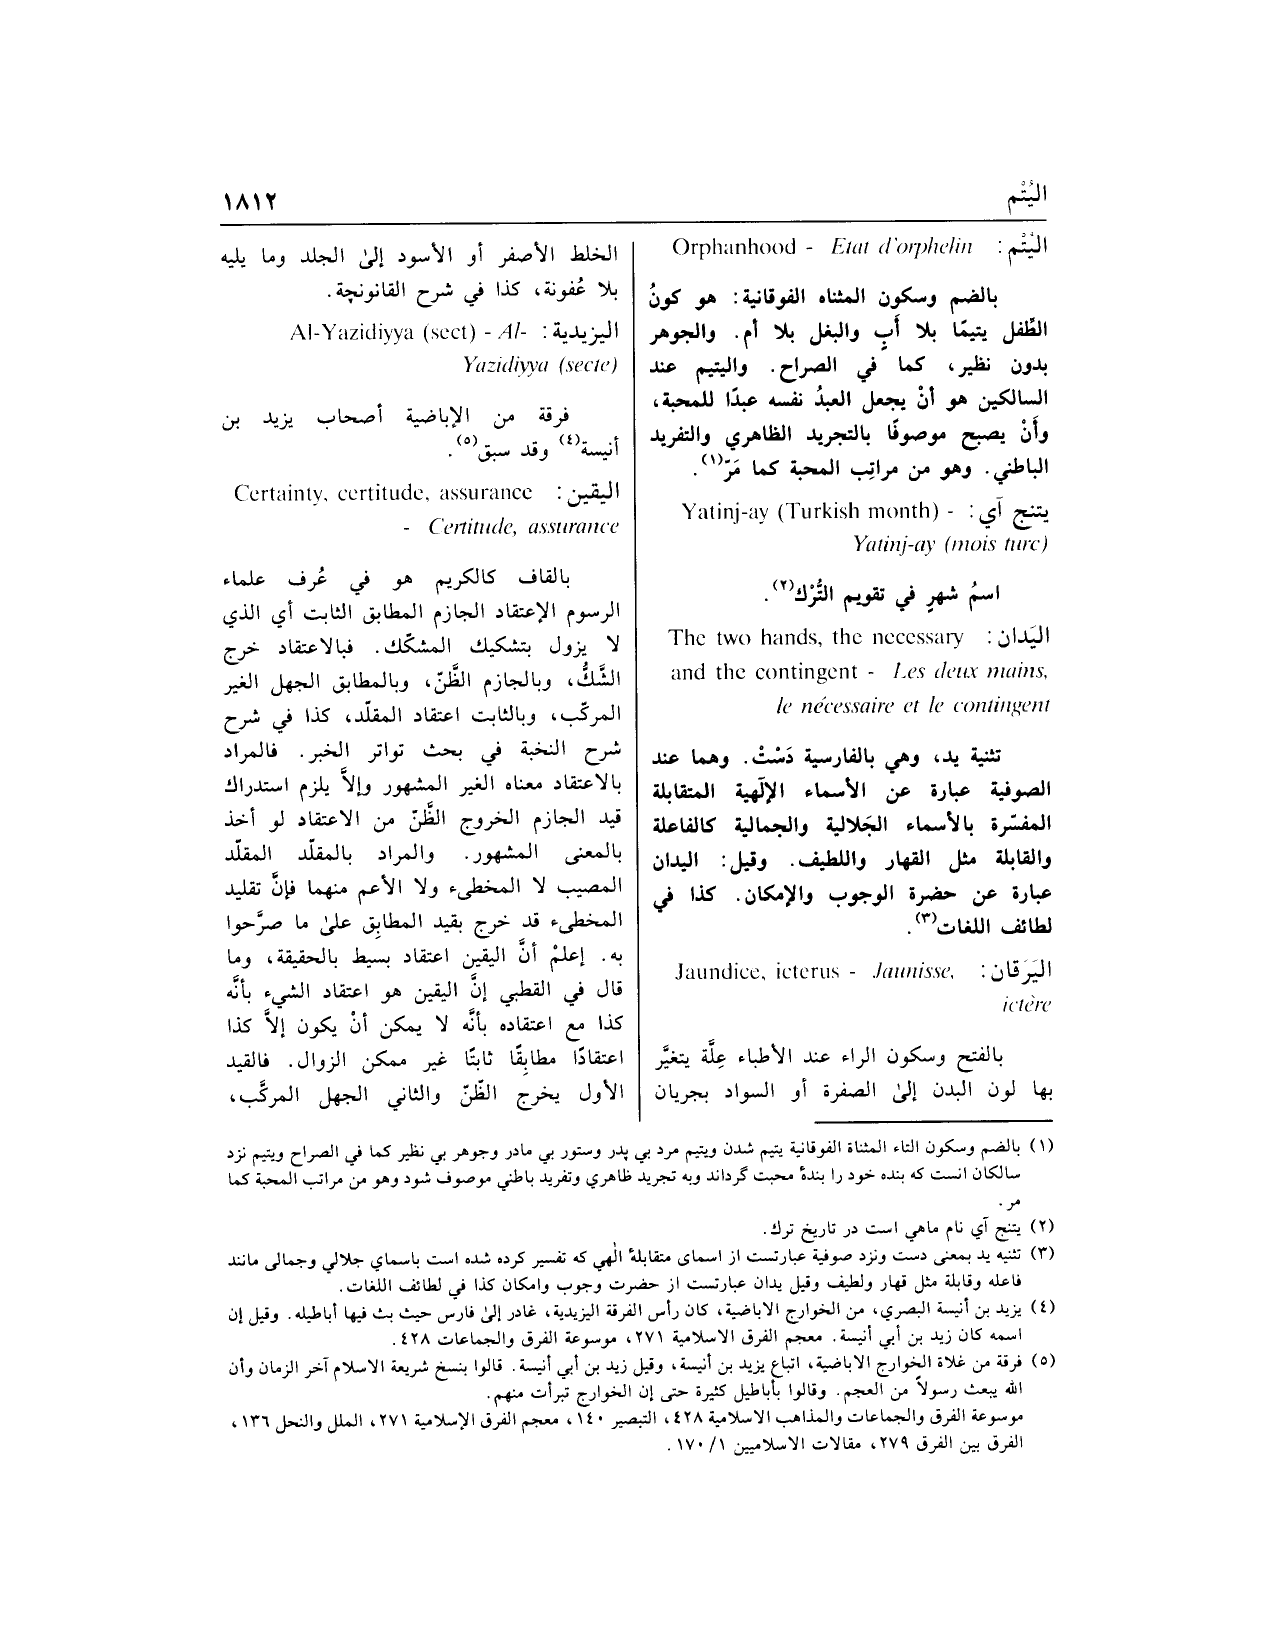 اليُتْم
١٨١٢
اليُتْم: Orphanhood - Etat d'orphelin
بالضم وسكون المثناه الفوقانية: هو كونُ
الطِّفل يتيمًا بلا أَبٍ والبغل بلا أم. والجوهر
بدون نظير، كما في الصراح. واليتيم عند
السالكين هو أنْ يجعل العبدُ نفسه عبدًا للمحبة،
وأَنْ يصبح موصوفًا بالتجريد الظاهري والتفريد
الباطني. وهو من مراتب المحبة كما مَرّ(١).
يتنج آي: Yatinj-ay (Turkish month) -
Yatinj-ay (mois turc)
اسمُ شهرٍ في تقويم التُّرْك(٢).
اليَدان: The two hands, the necessary
and the contingent - Les deux mains,
le nécessaire et le contingent
تثنية يد، وهي بالفارسية دَسْتْ. وهما عند
الصوفية عبارة عن الأسماء الإلٓهية المتقابلة
المفسّرة بالأسماء الجَلالية والجمالية كالفاعلة
والقابلة مثل القهار واللطيف. وقيل: اليدان
عبارة عن حضرة الوجوب والإمكان. كذا في
لطائف اللغات(٣).
اليَرَقان: Jaundice, icterus - Jaunisse,
ictère
بالفتح وسكون الراء عند الأطباء عِلَّة يتغيَّر
بها لون البدن إلىٰ الصفرة أو السواد بجريان
الخلط الأصفر أو الأسود إلىٰ الجلد وما يليه
بلا عُفونة، كذا في شرح القانونچة.
اليزيدية: Al-Yazidiyya (sect) - Al-
Yazidiyya (secte)
فرقة من الإباضية أصحاب يزيد بن
أنيسة(٤) وقد سبق(٥).
اليقين: Certainty, certitude, assurance
- Certitude, assurance
بالقاف كالكريم هو في عُرف علماء
الرسوم الإعتقاد الجازم المطابق الثابت أي الذي
لا يزول بتشكيك المشكّك. فبالاعتقاد خرج
الشَّكُّ، وبالجازم الظَّنّ، وبالمطابق الجهل الغير
المركّب، وبالثابت اعتقاد المقلّد، كذا في شرح
شرح النخبة في بحث تواتر الخبر. فالمراد
بالاعتقاد معناه الغير المشهور وإلاَّ يلزم استدراك
قيد الجازم الخروج الظَّنّ من الاعتقاد لو أخذ
بالمعنى المشهور. والمراد بالمقلّد المقلّد
المصيب لا المخطىء ولا الأعم منهما فإنَّ تقليد
المخطىء قد خرج بقيد المطابِق علىٰ ما صرَّحوا
به. إعلمْ أنَّ اليقين اعتقاد بسيط بالحقيقة، وما
قال في القطبي إنَّ اليقين هو اعتقاد الشيء بأنَّه
كذا مع اعتقاده بأنَّه لا يمكن أنْ يكون إلاَّ كذا
اعتقادًا مطابِقًا ثابتًا غير ممكن الزوال. فالقيد
الأول يخرج الظّنّ والثاني الجهل المركَّب،
(١) بالضم وسكون التاء المثناة الفوقانية يتيم شدن ويتيم مرد بي پدر وستور بي مادر وجوهر بي نظير كما في الصراح ويتيم نزد
سالكان انست كه بنده خود را بندهٔ محبت گرداند وبه تجريد ظاهري وتفريد باطني موصوف شود وهو من مراتب المحبة كما
مر.
(٢) يتنج آي نام ماهي است در تاريخ ترك.
(٣) تثنيه يد بمعنى دست ونزد صوفية عبارتست از اسماى متقابلهٔ الٰهي كه تفسير كرده شده است باسماي جلالي وجمالى مانند
فاعله وقابلة مثل قهار ولطيف وقيل يدان عبارتست از حضرت وجوب وامكان كذا في لطائف اللغات.
(٤) يزيد بن أنيسة البصري، من الخوارج الاباضية، كان رأس الفرقة اليزيدية، غادر إلىٰ فارس حيث بث فيها أباطيله. وقيل إن
اسمه كان زيد بن أبي أنيسة. معجم الفرق الاسلامية ٢٧١، موسوعة الفرق والجماعات ٤٢٨.
(٥) فرقة من غلاة الخوارج الاباضية، اتباع يزيد بن أنيسة، وقيل زيد بن أبي أنيسة. قالوا بنسخ شريعة الاسلام آخر الزمان وأن
الله يبعث رسولاً من العجم. وقالوا بأباطيل كثيرة حتى إن الخوارج تبرأت منهم.
موسوعة الفرق والجماعات والمذاهب الاسلامية ٤٢٨، التبصير ١٤٠، معجم الفرق الإسلامية ٢٧١، الملل والنحل ١٣٦،
الفرق بين الفرق ٢٧٩، مقالات الاسلاميين ١/ ١٧٠.